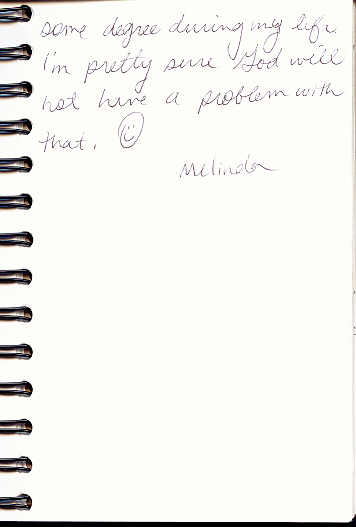 some degree during my life.
I'm pretty sure God will
not have a problem with
that. ☺
Melinda